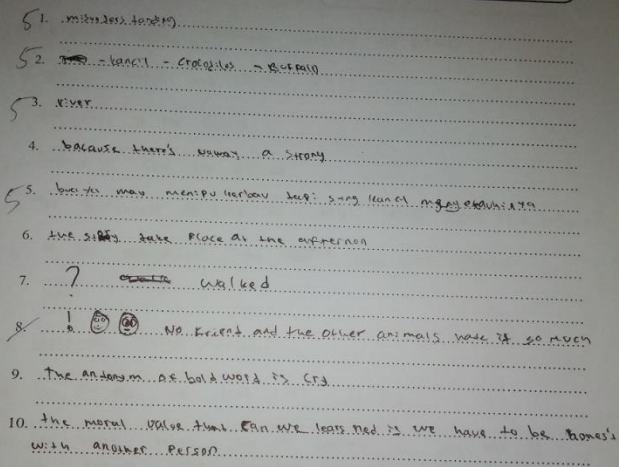 5 1.
5 2. - kancil - crocodiles - Buffalo
5 3. river
4. because there's a strong
5 5. buaya mau kerbau tapi sang kancil
6. the story take place at the afternoon
7. ? walked
8. ! No frient and the other animals hate it so much
9. the antonym of bold word is cry
10. the moral value that can we learned is we have to be hones't
with another person